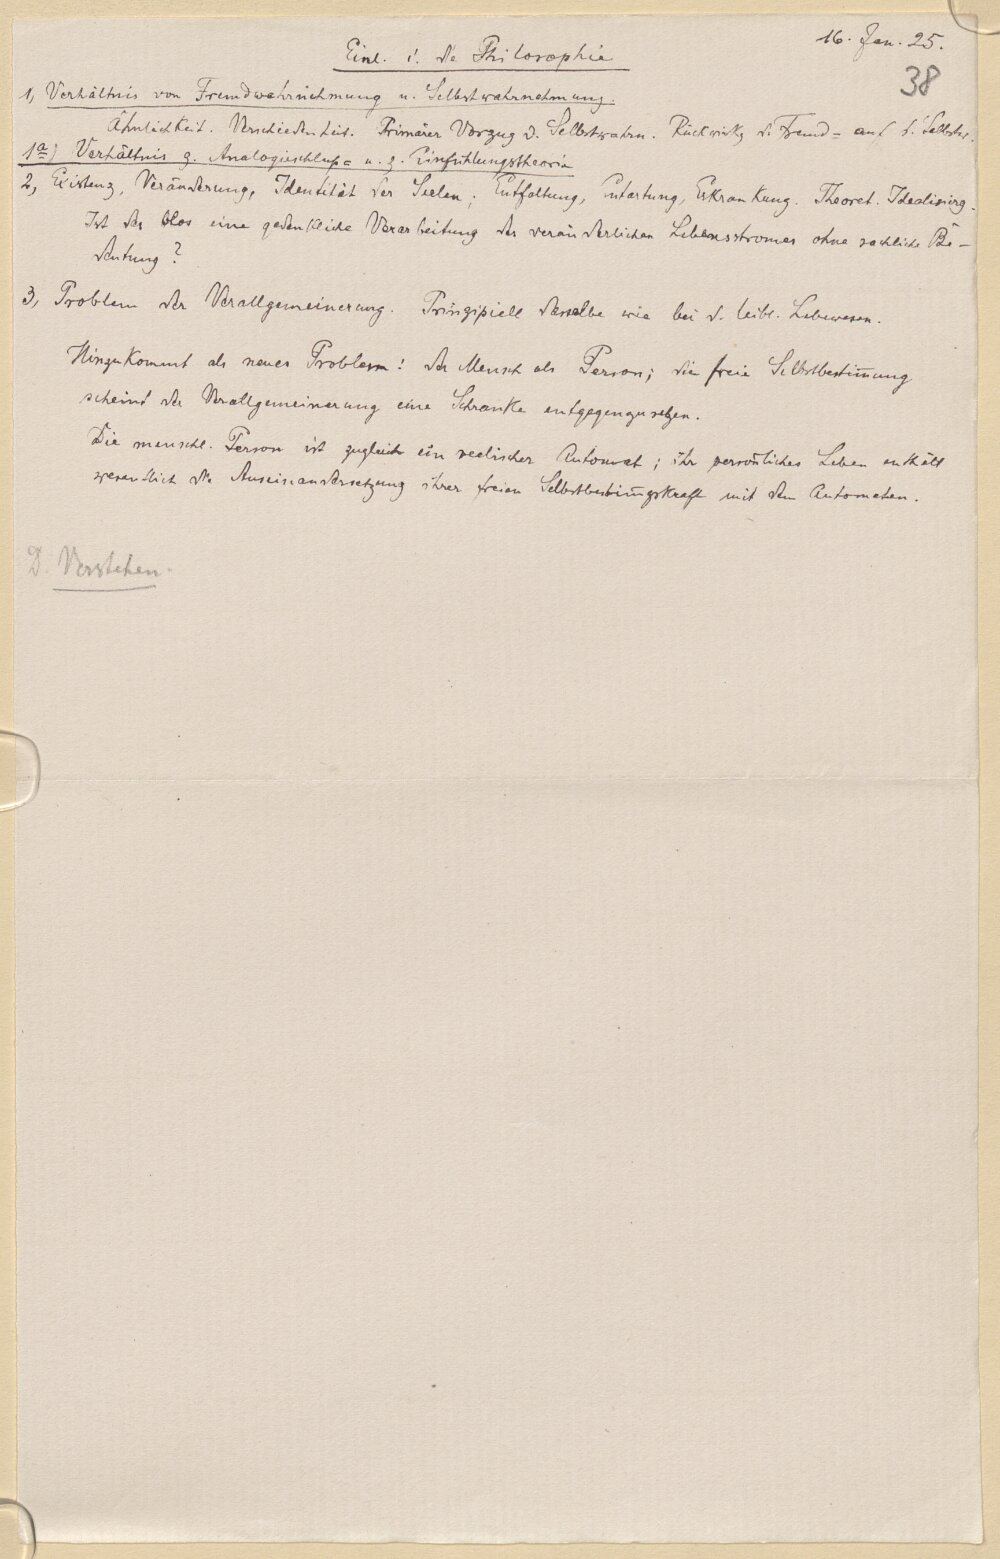 16. Jan. 25.
Einl. i. die Philosophie
38
1, Verhältnis von Fremdwahrnehmung u. Selbstwahrnehmung.
Ähnlichkeit. Verschiedenheit. Primärer Vorzug d. Selbstwahrn. Rückwirkg d. Fremd = auf d. Selbstw.
1a) Verhältnis z. Analogieschluß = u. z. Einfühlungstheorie
2, Existenz, Veränderung, Identität der Seelen; Entfaltung, Entartung, Erkrankung. Theoret. Idealisierg.
Ist das blos eine gedankliche Verarbeitung des veränderlichen Lebensstromes ohne sachliche Be-
deutung?
3, Problem der Verallgemeinerung. Prinzipiell dasselbe wie bei d. leibl. Lebewesen.
Hinzukommt als neues Problem: der Mensch als Person; die freie Selbstbestim̅ung
scheint der Verallgemeinerung eine Schranke entgegenzusetzen.
Die menschl. Person ist zugleich ein seelischer Automat; ihr persönliches Leben enthält
wesentlich die Auseinandersetzung ihrer freien Selbstbestim̅gskraft mit dem Automaten.
D. Verstehen.